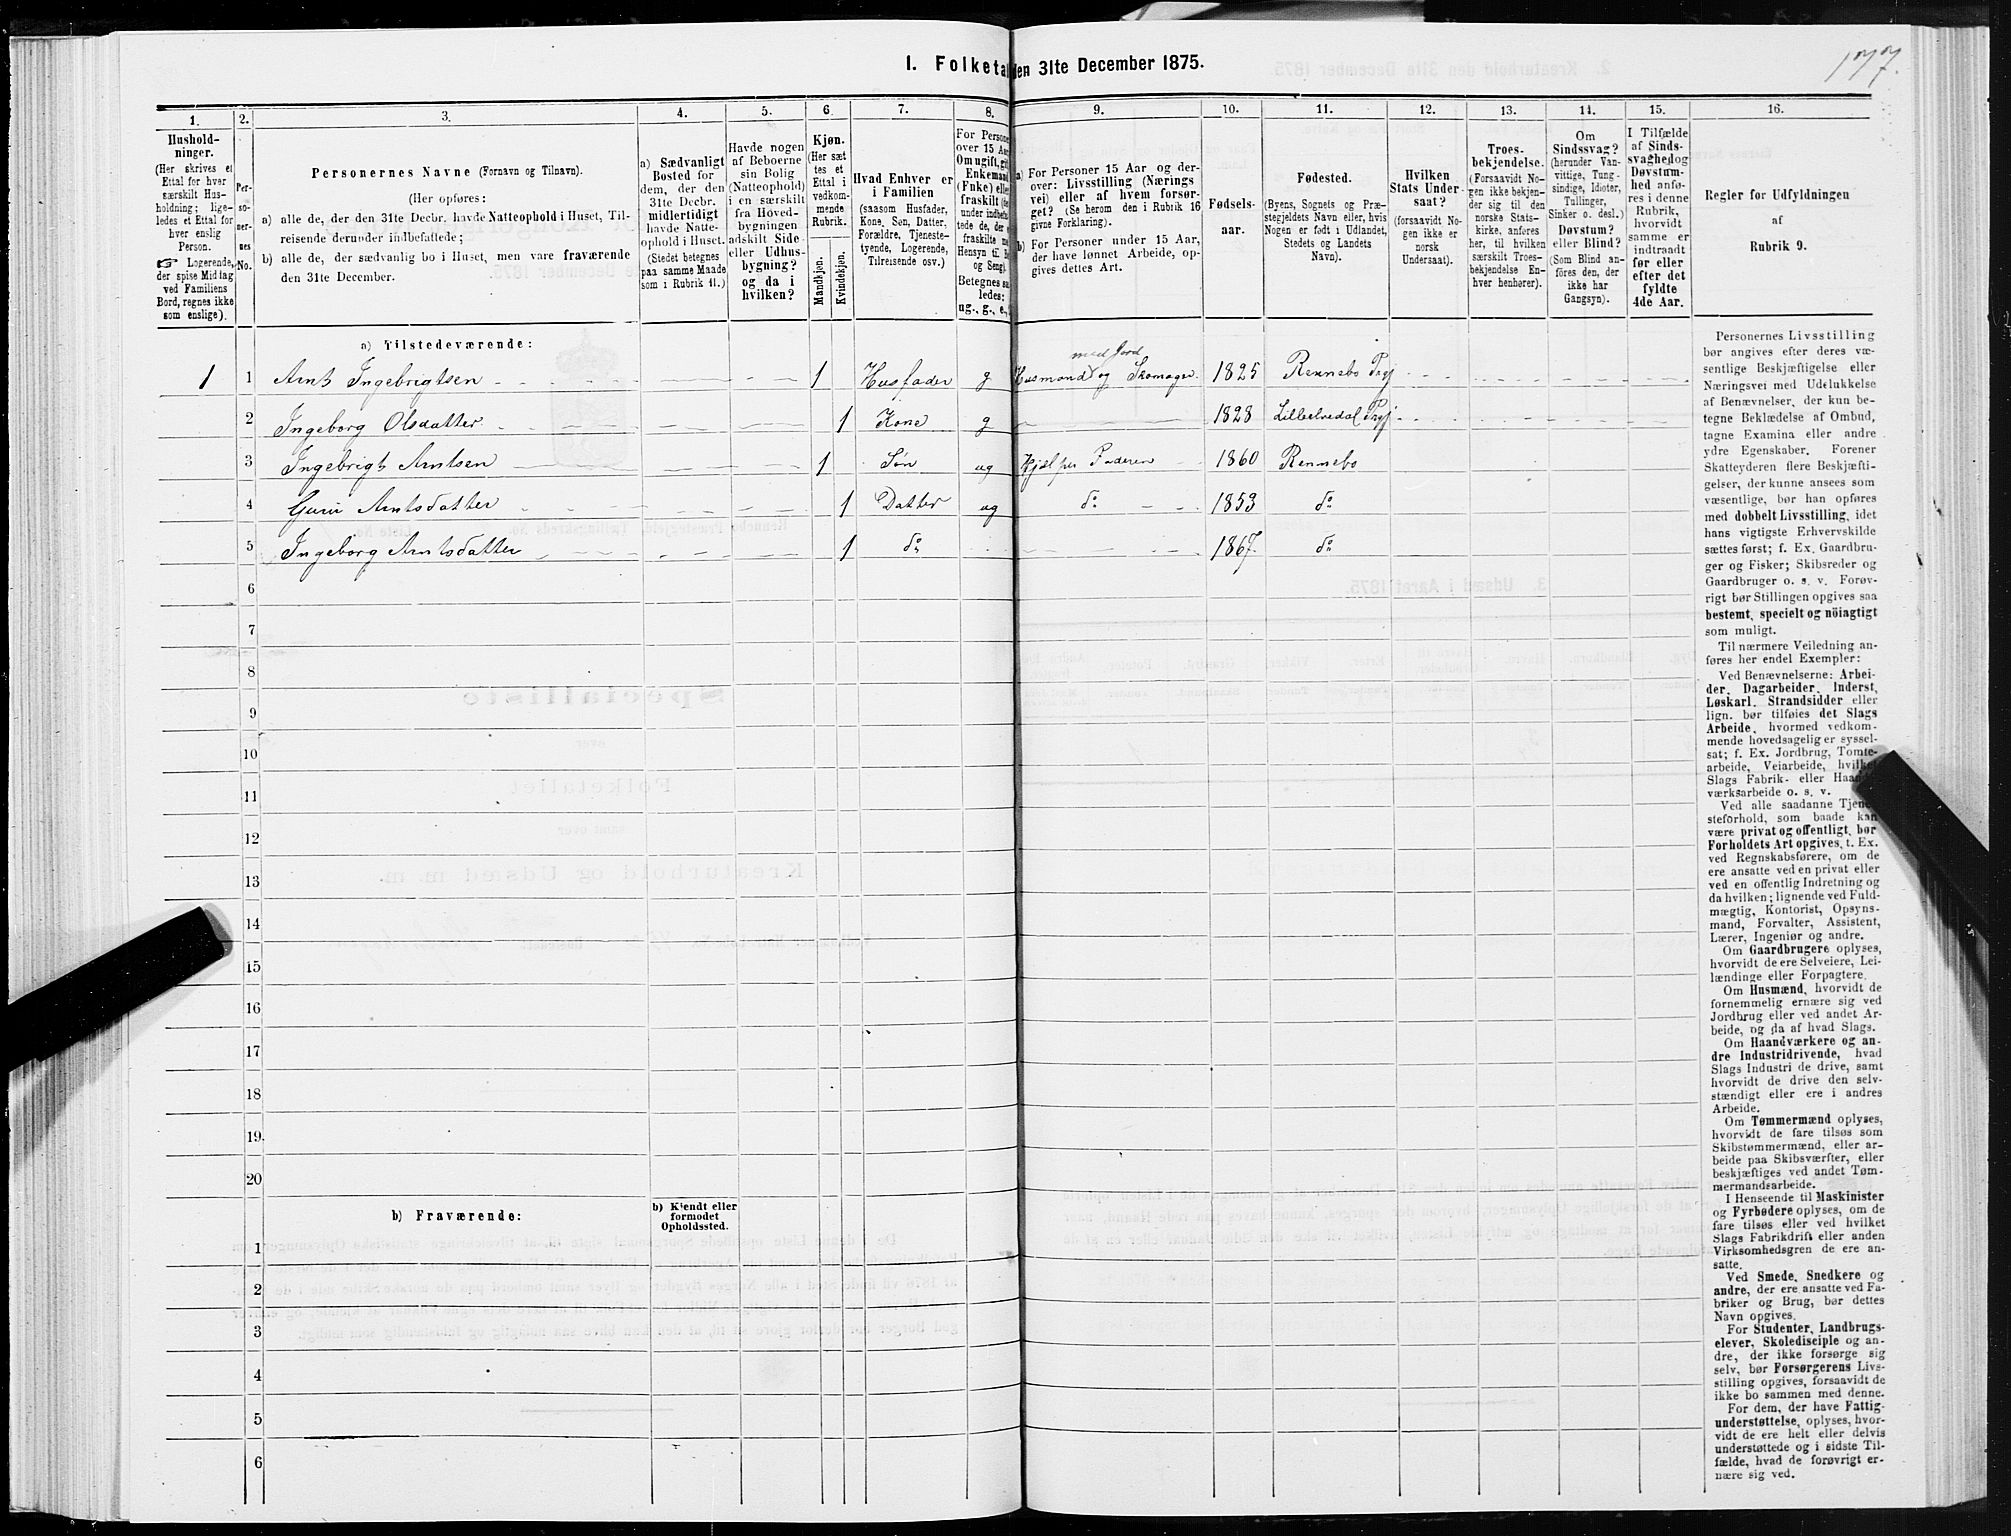 177.
1. Folketal den 31te December 1875.
1. 2. 3. 4. 5. 6. 7. 8. 9. 10. 11. 12. 13. 14. 15. 16.
Hushold-
ninger.
(Her skrives et
Ettal for hver
særskilt Hus-
holdning; lige-
ledes et Ettal for
hver enslig
Person.
☞ Logerende,
der spise Middag
ved Familiens
Bord, regnes ikke
som enslige).
Per-
so-
ner-
nes
No.
Personernes Navne (Fornavn og Tilnavn).
(Her opføres:
a) alle de, der den 31te Decbr. havde Natteophold i Huset, Til-
reisende derunder indbefattede;
b) alle de, der sædvanlig bo i Huset, men vare fraværende
den 31te December.
a) Sædvanligt
Bosted for
dem, der den
31te Decbr.
midlertidigt
havde Natte-
ophold i Huset.
(Stedet betegnes
paa samme Maade
som i Rubrik 11.)
Havde nogen
af Beboerne
sin Bolig
(Natteophold)
i en særskilt
fra Hoved-
bygningen
adskilt Side-
eller Udhus-
bygning?
og da i
hvilken?
Kjøn.
(Her sæt-
tes et
Ettal i
vedkom-
mende
Rubrik.
Mandkjøn.
Kvindekjøn.
Hvad Enhver er
i Familien
(saasom Husfader,
Kone, Søn, Datter,
Forældre, Tjeneste-
tyende, Logerende,
Tilreisende osv.)
For Persone
over 15 Aar
Om ugift, gif
Enkemand
(Fnke) elle
fraskilt (de
under indbefa
tede de, de
fraskilte me
Hensyn til B
og Seng).
Betegnes sa
ledes:
ug., g., e.,
a) For Personer 15 Aar og der-
over: Livsstilling (Nærings
vei) eller af hvem forsør-
get? (Se herom den i Rubrik 16
givne Forklaring).
b) For Personer under 15 Aar,
der have lønnet Arbeide, op-
gives dettes Art.
Fødsels-
aar.
Fødested.
(Byens, Sognets og Præ-
stegjeldets Navn eller, hvis
Nogen er født i Udlandet,
Stedets og Landets
Navn).
Hvilken
Stats Under-
saat?
(forsaavidt No-
gen ikke er
norsk
Undersaat).
Troes-
bekjendelse.
(Forsaavidt No-
gen ikke bekjen-
der sig til den
norske Stats-
kirke, anføres
her, til hvilken
særskilt Troes-
bekjendelse En-
hver henhører).
Om
Sindssvag?
(herunder Van-
vittige, Tung-
sindige, Idioter,
Tullinger,
Sinker o. desl.)
Døvstum?
eller Blind?
(Som Blind an-
føres den, der
ikke har
Gangsyn).
I Tilfælde
af Sinds-
svaghed og
Døvstum-
hed anfø-
res i denne
Rubrik,
hvorvidt
samme er
indtraadt
før eller
efter det
fyldte
4de Aar.
Regler for Udfyldningen
af
Rubrik 9.
a) Tilstedeværende:
1 1 Arnt Ingebrigtsen 1 Husfader g Husmand med Jord og Skomager 1825 Rennebo Prgj
2 Ingeborg Olsdatter 1 Kone g 1828 Lilleelvedal Prgj
3 Ingebrigt Arntsen 1 Søn ug Hjælper Faderen 1860 Rennebo
4 Guri Arntsdatter 1 Datter ug do 1853 do
5 Ingeborg Arntsdatter 1 do 1867. do
6
7
8
9
10
11
12
13
14
15
16
17
18
19.
20
b) Fraværende:
b) Kjendt eller
formodet
Opholdssted.
1
2
3
4
5
6
Personernes Livsstilling
bør angives efter deres væ-
sentlige Beskjæftigelse eller
Næringsvei med Udelukkelse
af Benævnelser, der kun be-
tegne Beklædelse af Ombud,
tagne Examina eller andre
ydre Egenskaber. Forener
Skatteyderen flere Beskjæfti-
gelser, der kunne ansees som
væsentlige, bør han opføres
med dobbelt Livsstilling, idet
hans vigtigste Erhvervskilde
sættes først; f. Ex. Gaardbru-
ger og Fisker; Skibsreder og
Gaardbruger o. s. v. Forøv-
rigt bør Stillingen opgives saa
bestemt, specielt og nöiagtigt
som muligt.
Til nærmere Veiledning an-
føres her endel Exempler:
Ved Benævnelserne: Arbei-
der, Dagarbeider, Inderst,
Løskarl, Strandsidder eller
lign. bør tilføies det Slags
Arbeide, hvormed vedkom-
mende hovedsagelig er syssel-
sat; f. Ex. Jordbrug, Tomte-
arbeide, Veiarbeide, hvilket
Slags Fabrik- eller Haand-
værksarbeide o. s. v.
Ved alle saadanne Tjene-
steforhold, som baade kan
være privat og offentligt, bør
Forholdets Art opgives, t. Ex.
ved Regnskabsførere, om de
ere ansatte ved en privat eller
ved en offentlig Indretning og
da hvilken; lignende ved Fuld-
mægtig, Kontorist, Opsyns-
mand, Forvalter, Assistent,
Lærer, Ingeniør og andre.
Om Gaardbrugere oplyses,
hvorvidt de ere Selveiere, Lei-
lændinge eller Forpagtere.
Om Husmænd, hvorvidt de
fornemmelig ernære sig ved
Jordbrug eller ved andet Ar-
beide, og da af hvad Slags.
Om Haandværkere og an-
dre Industridrivende, hvad
Slags Industri de drive, samt
hvorvidt de drive den selv-
stændigt eller ere i andres
Arbeide.
Om Tømmermænd oplyses,
hvorvidt de fare tilsøs som
Skibstømmermænd, eller ar-
beide paa Skibsværfter, eller
beskjæftiges ved andet Tøm-
mermandsarbeide.
I Henseende til Maskinister
og Fyrbødere oplyses, om de
fare tilsøs eller ved hvilket
Slags Fabrikdrift eller anden
Virksomhedsgren de ere an-
satte.
Ved Smede, Snedkere og
andre, der ere ansatte ved Fa-
briker og Brug, bør dettes
Navn opgives.
For Studenter, Landbrugs-
elever, Skoledisciple og an-
dre, der ikke forsørge sig
selv, bør Forsørgerens Livs-
stilling opgives, forsaavidt de
ikke bo sammen med denne.
For dem, der have Fattig-
understøttelse, oplyses, hvor-
vidt de ere helt eller delvis
understøttede og i sidste Til-
fælde, hvad de forøvrigt er-
nære sig ved.